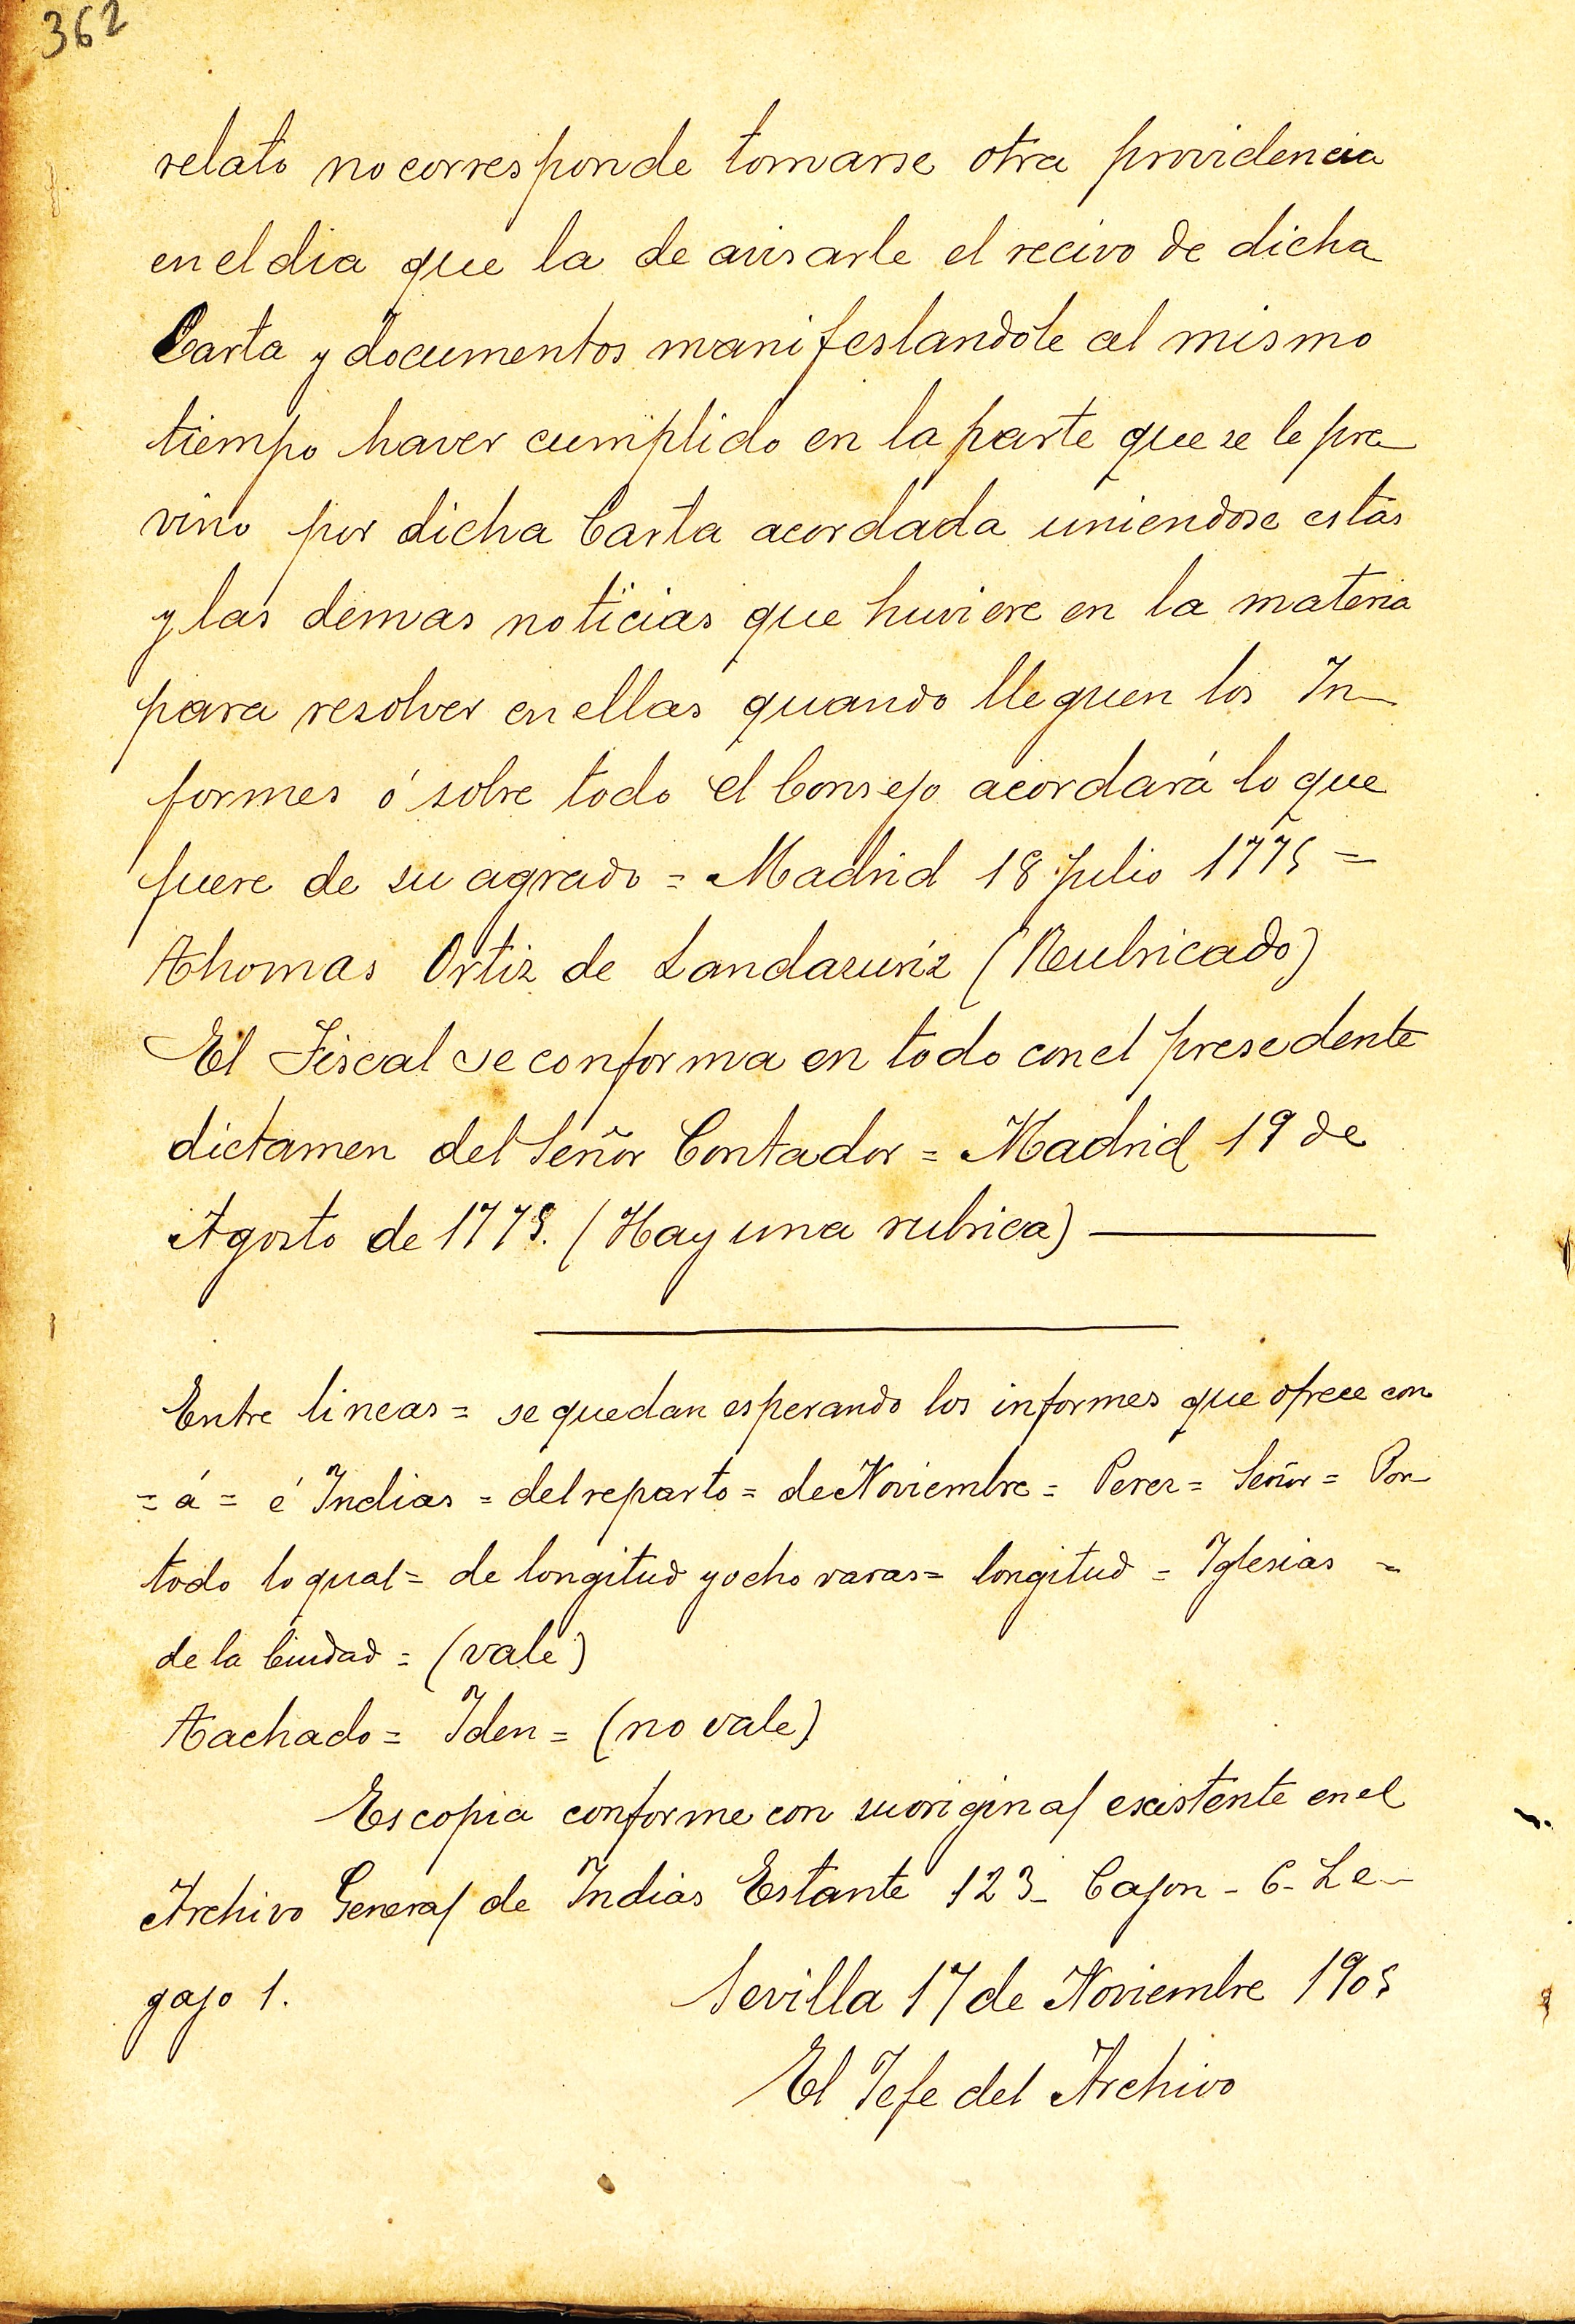 362
relato no corresponde tomarse otra providencia
en el dia que la de avisarle el recivo de dicha
Carta y documentos manifestandole al mismo
tiempo haver cumplido en la parte que se le pre
vino por dicha Carta acordada uniendose estas
y las demas noticias que huviere en la materia
para resolver en ellas quando lleguen los In-
formes ó sobre todo el Consejo acordará lo que
fuere de su agrado = Madrid 18 Julio 1775 =
Thomas Ortiz de Landazuriz (Rubricado)
El Fiscal se conforma en todo con el presedente
dictamen del Señor Contador = Madrid 19 de
Agosto de 1775. (Hay una rubrica)
Entre lineas = se quedan esperando los informes que ofrece con
= á = é Indias = del reparto = de Noviembre = Perez = Señor = Por
todo lo qual = de longitud y ocho varas = longitud = Iglesias =
de la Ciudad = (vale)
Tachado = Iden = (no vale)
Es copia conforme con su original existente en el
Archivo General de Indias Estante 123- Cajon - 6- Le-
gajo 1.
Sevilla 17 de Noviembre 1905
El Jefe del Archivo